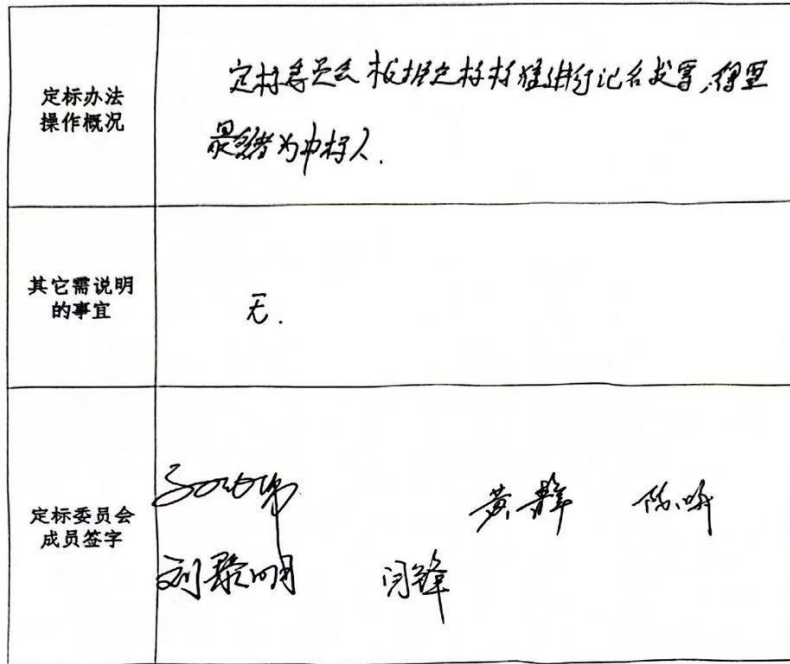 定标办法
操作概况
定标委员会根据定标标准进行记名投票,得票
最多者为中标人.
其它需说明
的事宜
无.
定标委员会
成员签字
黄群
刘
闫锋